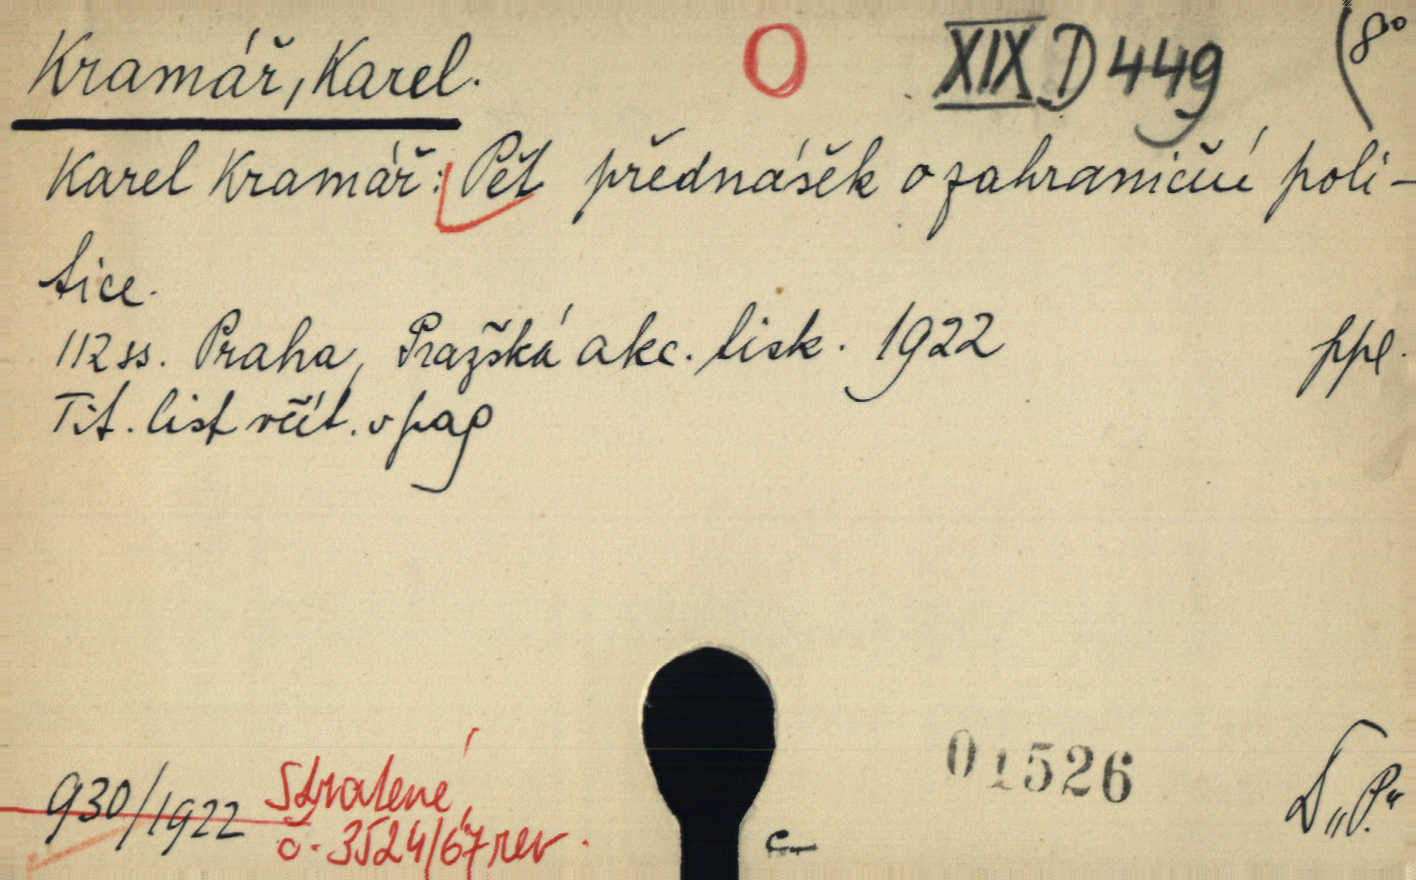 Kramář, Karel. O XIX D 449 (8°
Karel Kramář: Pět přednášek o zahraničně poli-
tice.
112 ss. Praha, Pražská akc. tisk. 1922 ppl.
Tit. list včít. v pag
01526
930/1922 Stratené, D „P.“
č. 3524/67 rev.